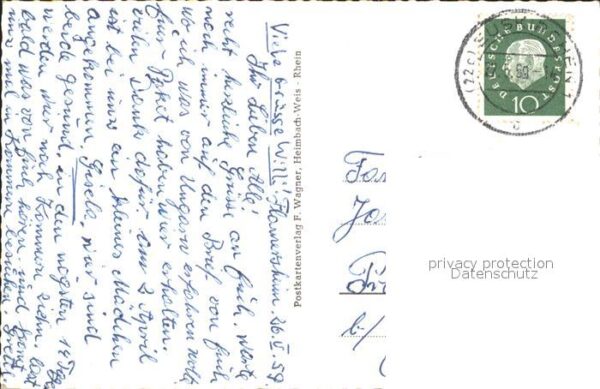 Viele Grüsse Willi! Flamersheim 26.V.59
Ihr Lieben Alle!
recht herzliche Grüsse an Euch. Warte
noch immer auf den Brief von Euch
wo ich was von Ungarn erfahren wollte
Euer Paket haben wir erhalten.
vielen Dank dafür. am 2 April
ist bei uns ein kleines Mädchen
angekommen. Gisela, wir sind
beide gesund, in den nägsten 14 Tage
werden wir nach Kommern ziehn, last
bald was von Euch hören und sonst
in Kommern
Postkartenverlag F. Wagner, Heimbach-Weis - Rhein
DEUTSCHE BUNDESPOST
10
(22c) EUSKIRCHEN 1
59
c
Jo
b/
privacy protection
Datenschutz